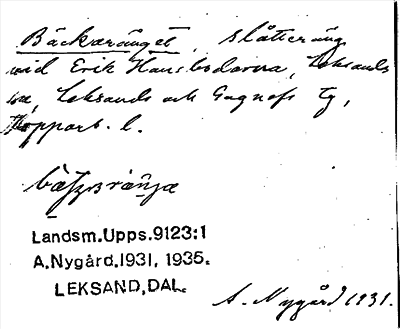 Bäckaränget, slåtteräng
vid Erik Hansbodarna, Leksands
sn, Leksands och Gagnefs tg,
Kopparb. l.
Landsm.Upps.9123:1
A.Nygård,1931, 1935.
LEKSAND,DAL.
A. Nygård 1931.